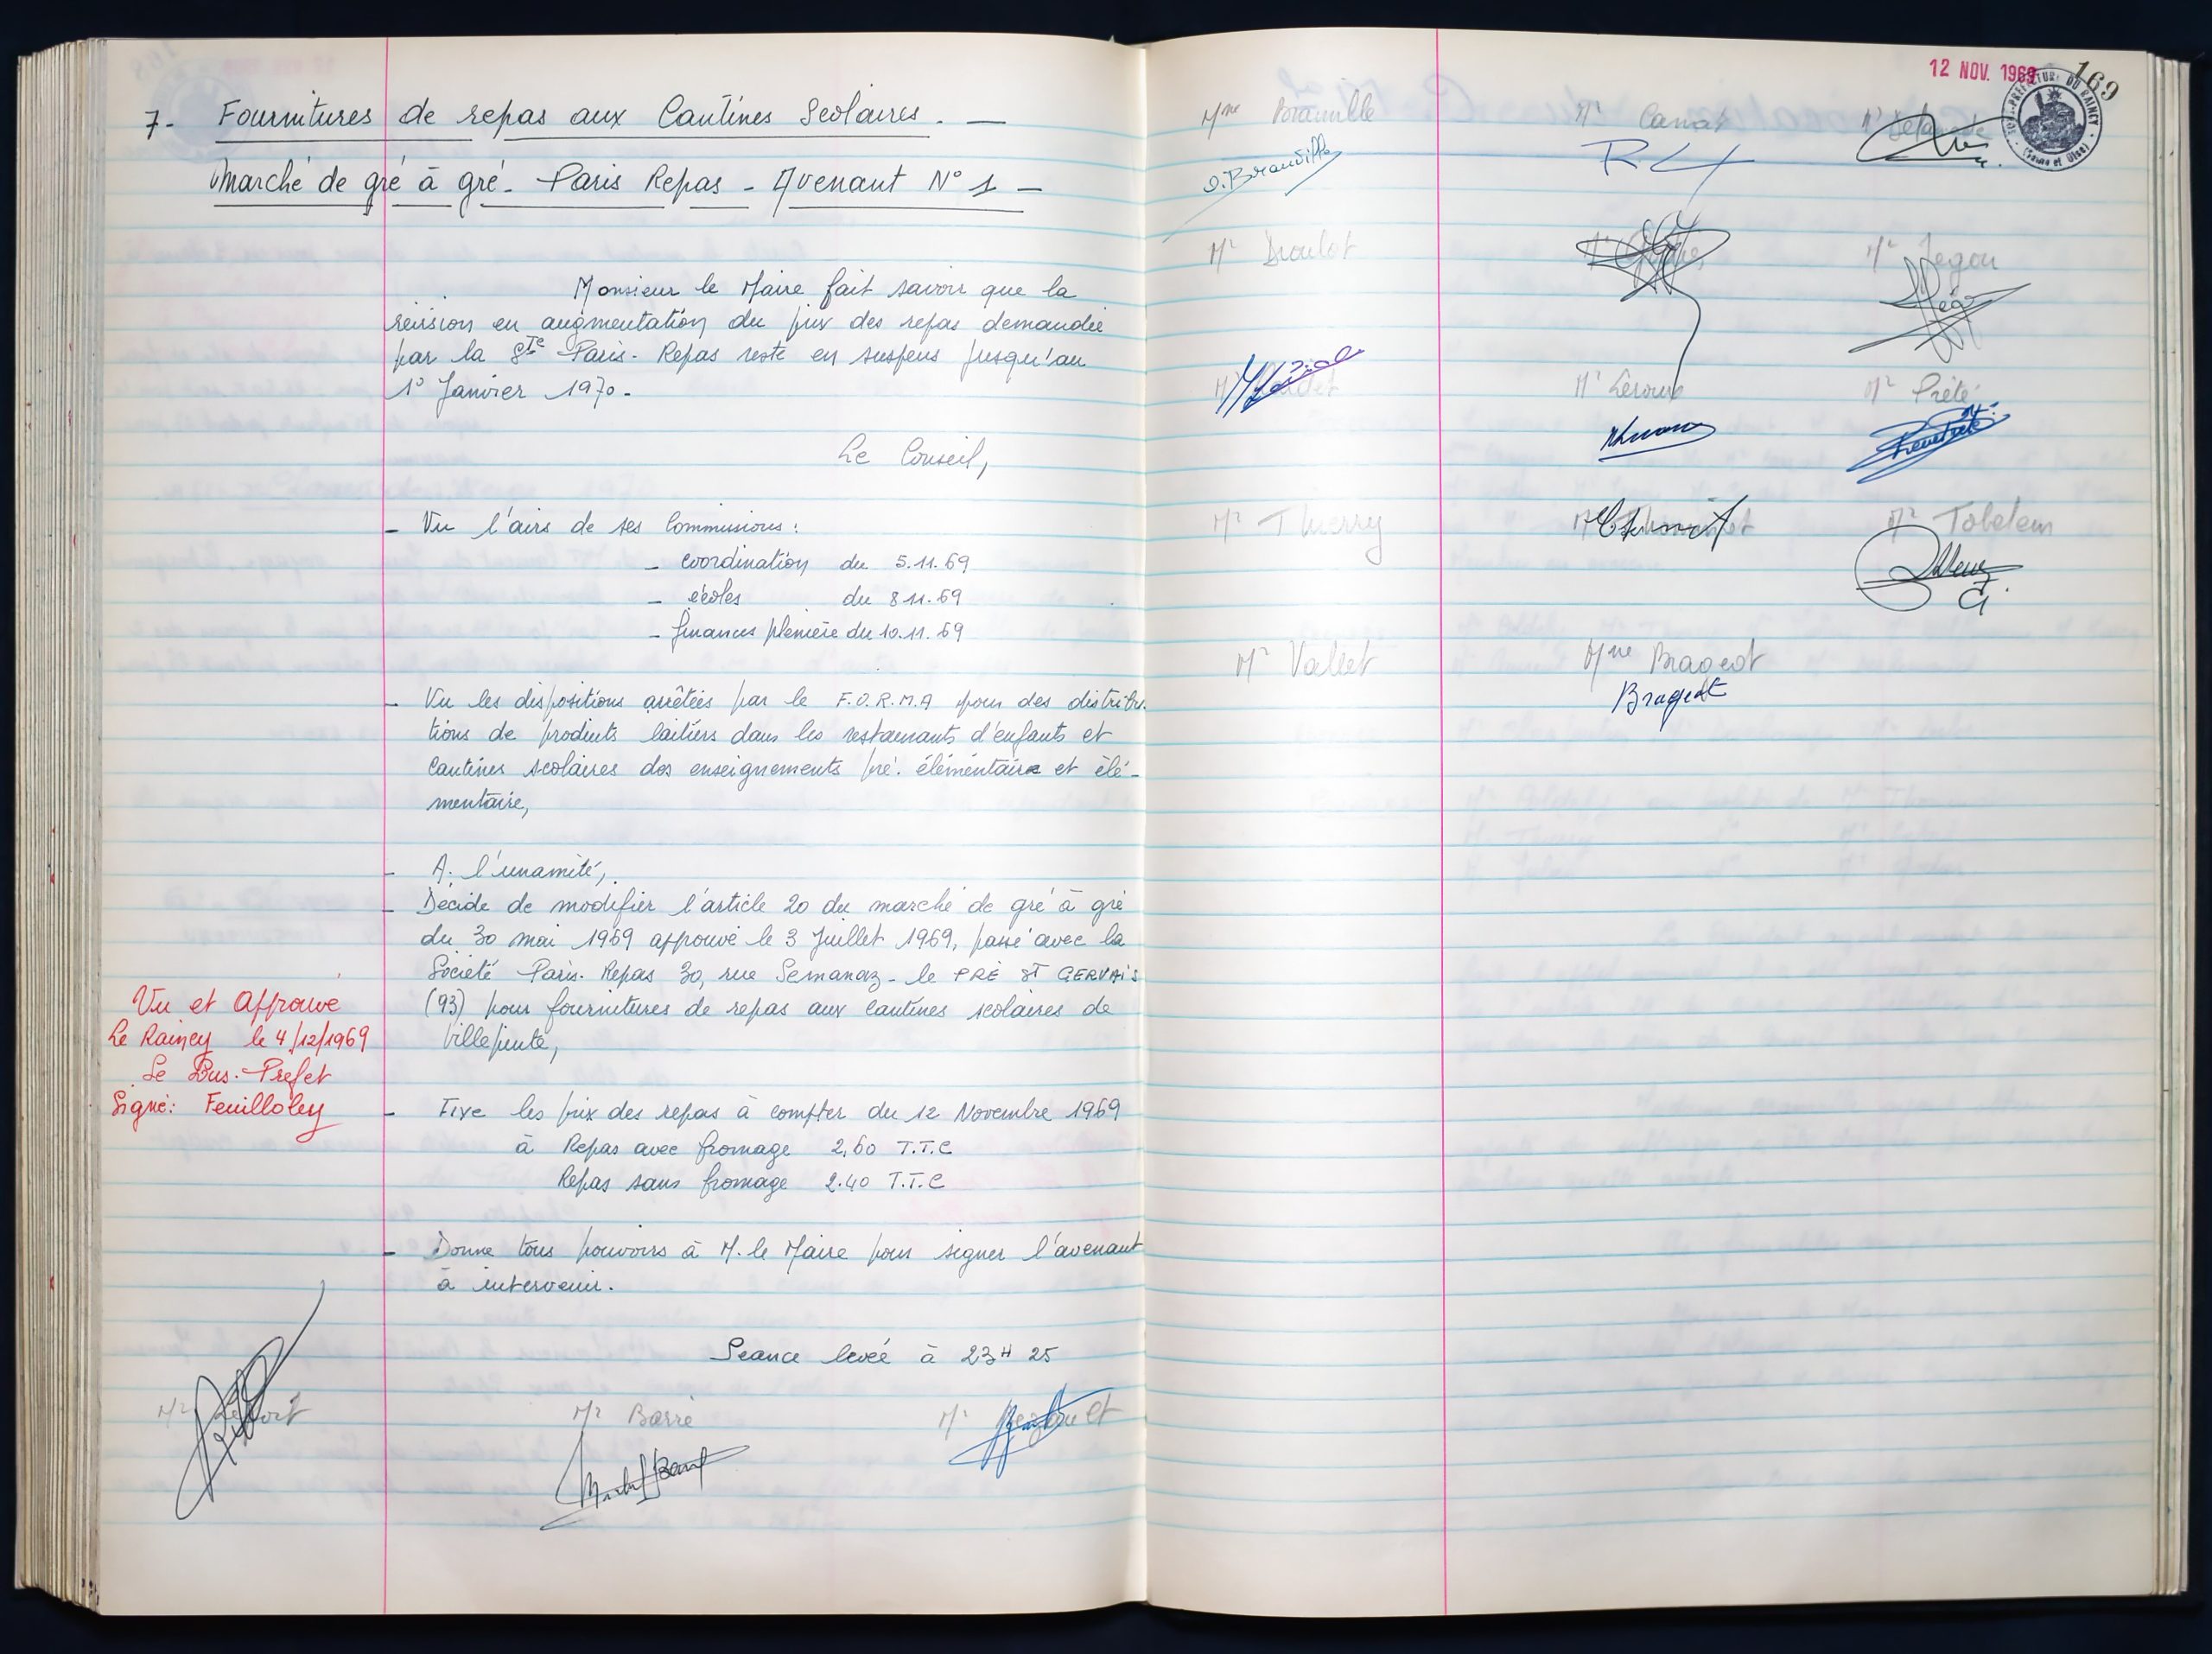 7- Fournitures de repas aux Cantines Scolaires. —
Marché de gré à gré - Paris Repas - Avenant N° 1 —
Monsieur le Maire fait savoir que la
révision en augmentation du prix des repas demandée
par la Sté Paris-Repas reste en suspens jusqu'au
1° Janvier 1970.
Le Conseil,
- Vu l'avis de ses Commissions :
- coordination du 5.11.69
- écoles du 8.11.69
- finances plenière du 10.11.69
- Vu les dispositions arrêtées par le F.O.R.M.A pour des distribu-
tions de produits laitiers dans les restaurants d'enfants et
cantines scolaires des enseignements pré-élémentaire et élé-
mentaire,
- A l'unamité,
- Décide de modifier l'article 20 du marché de gré à gré
du 30 mai 1969 approuvé le 3 Juillet 1969, passé avec la
Société Paris-Repas 30, rue Semanaz - le PRÉ ST GERVAIS
(93) pour fournitures de repas aux cantines scolaires de
Villepinte,
- Fixe les prix des repas à compter du 12 Novembre 1969
à Repas avec fromage 2,60 T.T.C
Repas sans fromage 2.40 T.T.C
- Donne tous pouvoirs à M. le Maire pour signer l'avenant
à intervenir.
Séance levée à 23H 25
Vu et Approuvé
Le Raincy le 4/12/1969
Le Sous-Préfet
Signé: Feuilloley
Mr Barré
Mr
12 NOV. 1969
169
SOUS-PRÉFECTURE DU RAINCY
(Seine et Oise)
Mme Branville Mr Canat Mr
O. Branville
Mr Droulot Mr Jegou
Mr Leroux Mr Piété
Mr Thierry Mr Tobelem
Mr Vallet Mme Brageot
Brageot